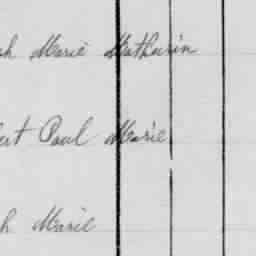 ph Marie Mathurin
bert Paul Marie
ph Marie